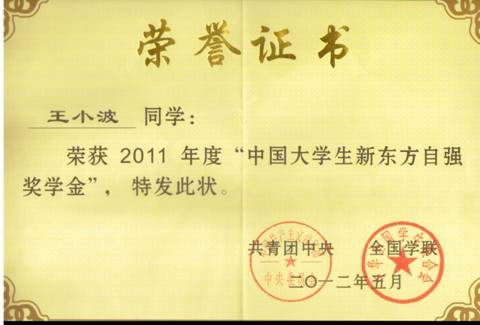 荣誉证书
王小波 同学：
荣获 2011 年度“中国大学生新东方自强
奖学金”，特发此状。
共青团中央 全国学联
二〇一二年五月